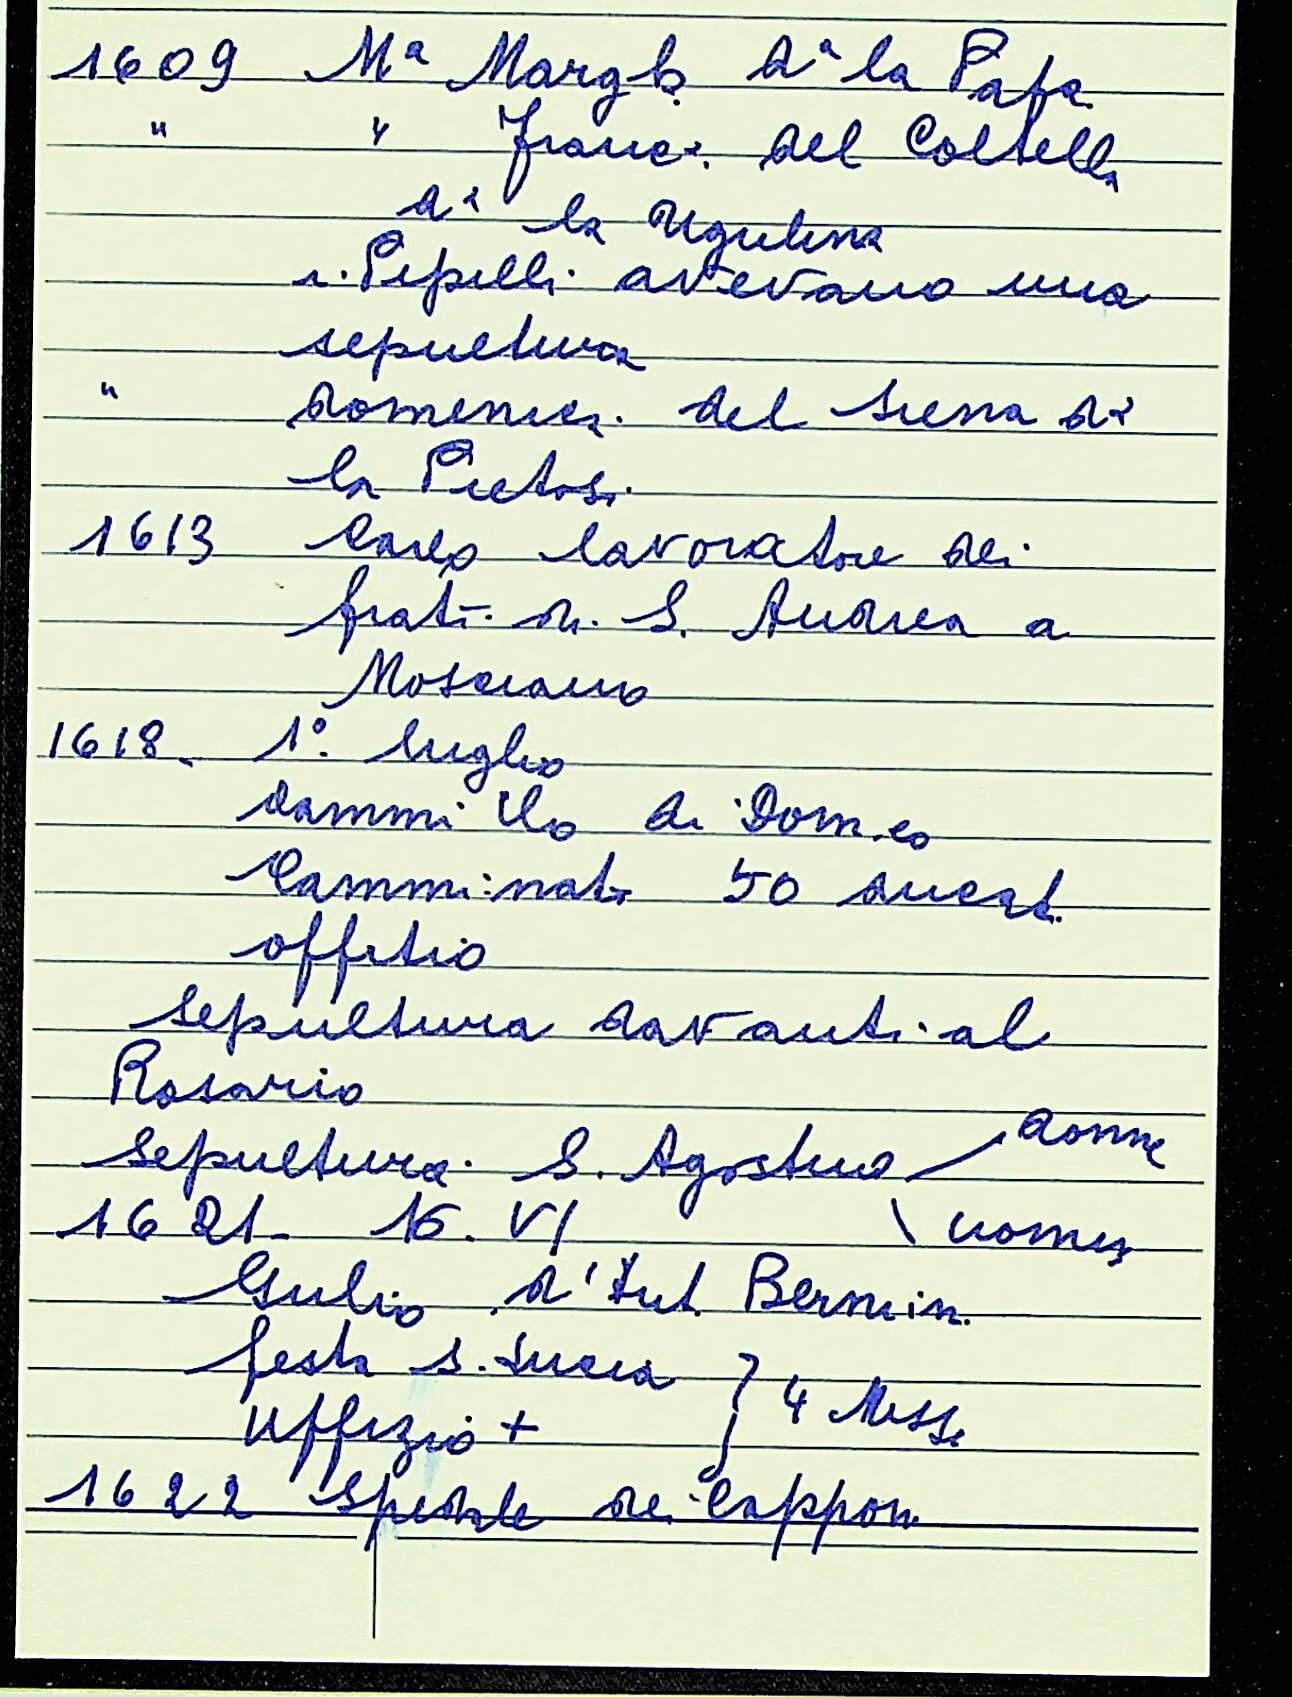 1609 Mª Margh. dª la Papa
" " Franc. del Coltella
dª la Ugulina
i Pepelli avevano una
sepultura
" Domenica del Siena dª
la Pietosa
1613 Carlo lavoratore dei
frati di S. Andrea a
Mosciano
1618. 1º. luglio
di Dom.co
Camminati 50 ducat.
offitio
sepultura davanti al
Rosario
donne
sepultura S. Agostino
1621. 15. VI uomini
Giulio d'Ant. Bernin.
festa S. Lucia } 4 Messe
Uffizio +
1622 Spedale dei Capponi